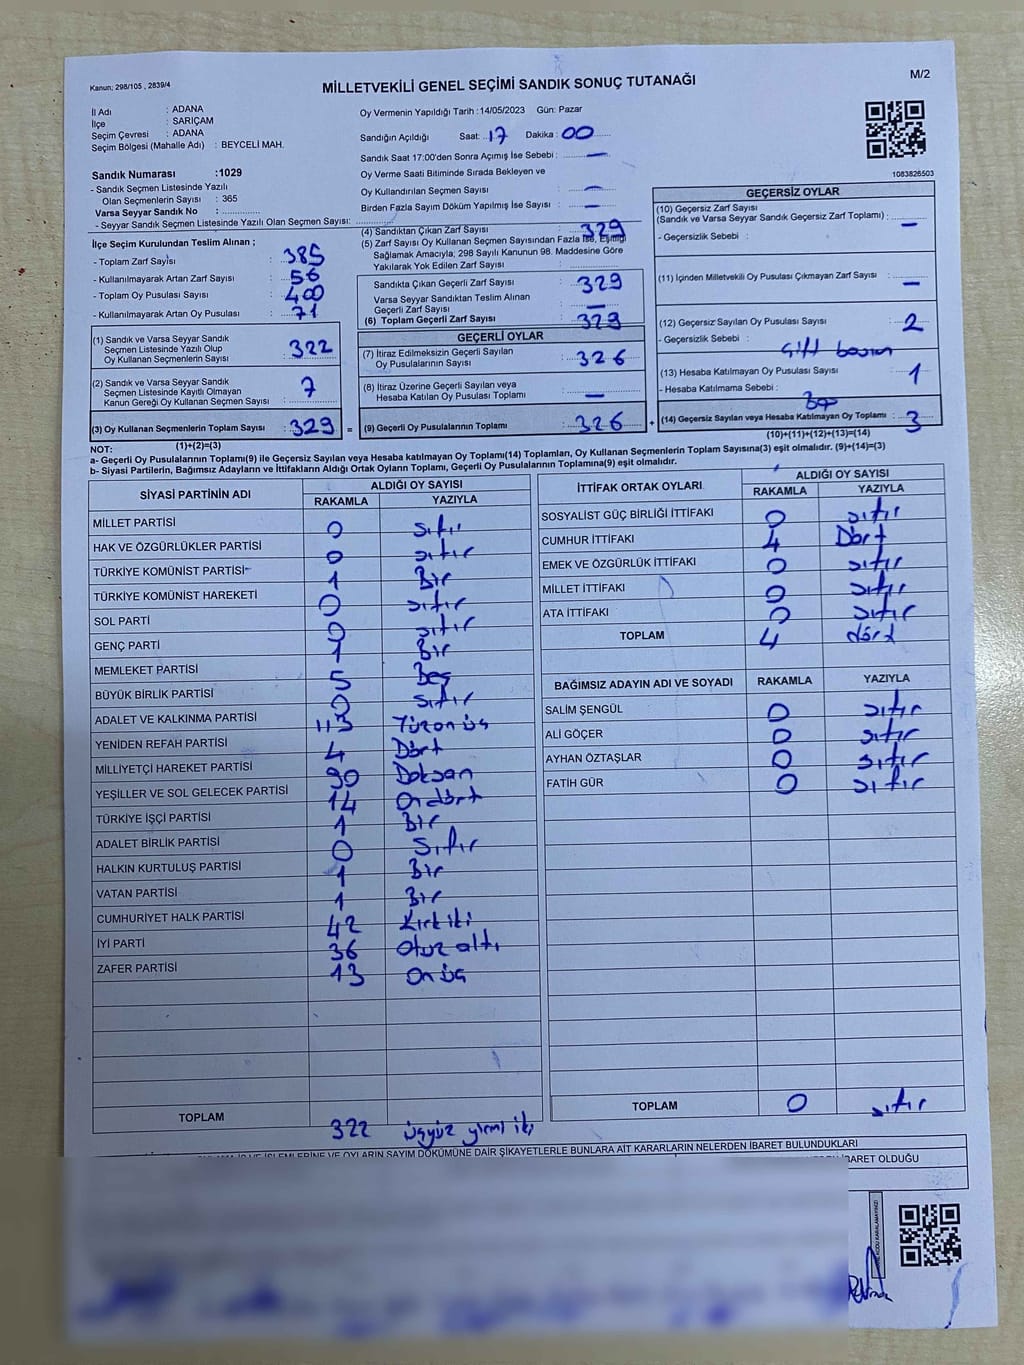 Kanun; 298/105 , 2839/4
MİLLETVEKİLİ GENEL SEÇİMİ SANDIK SONUÇ TUTANAĞI
M/2
İl Adı : ADANA
İlçe : SARIÇAM
Seçim Çevresi : ADANA
Seçim Bölgesi (Mahalle Adı) : BEYCELİ MAH.
Sandık Numarası :1029
- Sandık Seçmen Listesinde Yazılı
Olan Seçmenlerin Sayısı : 365
Varsa Seyyar Sandık No : ..............
- Seyyar Seçmen Listesinde Yazılı Olan Seçmen Sayısı: ..............
İlçe Seçim Kurulundan Teslim Alınan ;
- Toplam Zarf Sayısı : 385
- Kullanılmayarak Artan Zarf Sayısı : 56
- Toplam Oy Pusulası Sayısı : 400
- Kullanılmayarak Artan Oy Pusulası : 71
(1) Sandık ve Varsa Seyyar Sandık
Seçmen Listesinde Yazılı Olup
Oy Kullanan Seçmenlerin Sayısı : 322
(2) Sandık ve Varsa Seyyar Sandık
Seçmen Listesinde Kayıtlı Olmayan
Kanun Gereği Oy Kullanan Seçmen Sayısı : 7
(3) Oy Kullanan Seçmenlerin Toplam Sayısı : 329 =
(1)+(2)=(3)
Oy Vermenin Yapıldığı Tarih : 14/05/2023 Gün: Pazar
Sandığın Açıldığı Saat: 17 Dakika : 00
Sandık Saat 17:00'den Sonra Açımış İse Sebebi : —
Oy Verme Saati Bitiminde Sırada Bekleyen ve
Oy Kullandırılan Seçmen Sayısı : —
Birden Fazla Sayım Döküm Yapılmış İse Sayısı : —
(4) Sandıktan Çıkan Zarf Sayısı : 329
(5) Zarf Sayısı Oy Kullanan Seçmen Sayısından Fazla İse, Eşitliği
Sağlamak Amacıyla; 298 Sayılı Kanunun 98. Maddesine Göre
Yakılarak Yok Edilen Zarf Sayısı : ..............
Sandıkta Çıkan Geçerli Zarf Sayısı : 329
Varsa Seyyar Sandıktan Teslim Alınan
Geçerli Zarf Sayısı : —
(6) Toplam Geçerli Zarf Sayısı : 329
GEÇERLİ OYLAR
(7) İtiraz Edilmeksizin Geçerli Sayılan
Oy Pusulalarının Sayısı : 326
(8) İtiraz Üzerine Geçerli Sayılan veya
Hesaba Katılan Oy Pusulası Toplamı : —
(9) Geçerli Oy Pusulalarının Toplamı : 326 +
1083826503
GEÇERSİZ OYLAR
(10) Geçersiz Zarf Sayısı
(Sandık ve Varsa Seyyar Sandık Geçersiz Zarf Toplamı) : —
- Geçersizlik Sebebi :
(11) İçinden Milletvekili Oy Pusulası Çıkmayan Zarf Sayısı : —
(12) Geçersiz Sayılan Oy Pusulası Sayısı : 2
- Geçersizlik Sebebi : Çift basım
(13) Hesaba Katılmayan Oy Pusulası Sayısı : 1
- Hesaba Katılmama Sebebi : Boş
(14) Geçersiz Sayılan veya Hesaba Katılmayan Oy Toplamı : 3
(10)+(11)+(12)+(13)=(14)
NOT:
a- Geçerli Oy Pusulalarının Toplamı(9) ile Geçersiz Sayılan veya Hesaba katılmayan Oy Toplamı(14) Toplamları, Oy Kullanan Seçmenlerin Toplam Sayısına(3) eşit olmalıdır. (9)+(14)=(3)
b- Siyasi Partilerin, Bağımsız Adayların ve İttifakların Aldığı Ortak Oyların Toplamı, Geçerli Oy Pusulalarının Toplamına(9) eşit olmalıdır.
SİYASİ PARTİNİN ADI ALDIĞI OY SAYISI
RAKAMLA YAZIYLA
MİLLET PARTİSİ 0 sıfır
HAK VE ÖZGÜRLÜKLER PARTİSİ 0 sıfır
TÜRKİYE KOMÜNİST PARTİSİ 1 Bir
TÜRKİYE KOMÜNİST HAREKETİ 0 sıfır
SOL PARTİ 0 sıfır
GENÇ PARTİ 1 Bir
MEMLEKET PARTİSİ 5 Beş
BÜYÜK BİRLİK PARTİSİ 0 sıfır
ADALET VE KALKINMA PARTİSİ 113 Yüzonüç
YENİDEN REFAH PARTİSİ 4 Dört
MİLLİYETÇİ HAREKET PARTİSİ 90 Doksan
YEŞİLLER VE SOL GELECEK PARTİSİ 14 Ondört
TÜRKİYE İŞÇİ PARTİSİ 1 Bir
ADALET BİRLİK PARTİSİ 0 Sıfır
HALKIN KURTULUŞ PARTİSİ 1 Bir
VATAN PARTİSİ 1 Bir
CUMHURİYET HALK PARTİSİ 42 Kırkiki
İYİ PARTİ 36 Otuz altı
ZAFER PARTİSİ 13 Onüç
TOPLAM 322 üçyüz yirmi iki
İTTİFAK ORTAK OYLARI ALDIĞI OY SAYISI
RAKAMLA YAZIYLA
SOSYALİST GÜÇ BİRLİĞİ İTTİFAKI 0 sıfır
CUMHUR İTTİFAKI 4 Dört
EMEK VE ÖZGÜRLÜK İTTİFAKI 0 sıfır
MİLLET İTTİFAKI 0 sıfır
ATA İTTİFAKI 0 sıfır
TOPLAM 4 dört
BAĞIMSIZ ADAYIN ADI VE SOYADI ALDIĞI OY SAYISI
RAKAMLA YAZIYLA
SALİM ŞENGÜL 0 sıfır
ALİ GÖÇER 0 sıfır
AYHAN ÖZTAŞLAR 0 sıfır
FATİH GÜR 0 sıfır
TOPLAM 0 sıfır
VE İŞLEMLERİNE VE OYLARIN SAYIM DÖKÜMÜNE DAİR ŞİKAYETLERLE BUNLARA AİT KARARLARIN NELERDEN İBARET BULUNDUKLARI
İBARET OLDUĞU